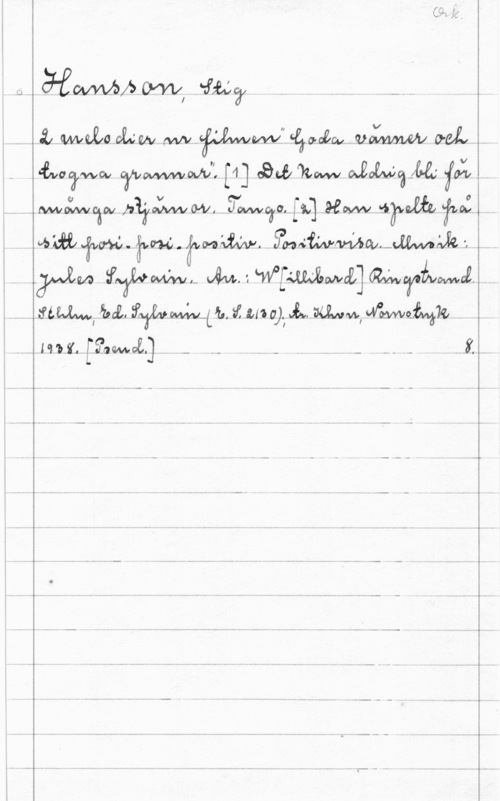 Ork.
Hansson, Stig
2 melodier ur filmen "Goda vänner och
trogna grannar". [1] Det kan aldrig bli för
många stjärnor. Tango. [2] Han spelte på
sitt posi- posi- positiv. Positivvisa. Musik:
Jules Sylvain. Arr.: W[illibard] Ringstrand
Sthlm, Ed. Sylvain (E. S. 2130), tr. Khvn, Nornotryk
1938. [Pseud.] 8.